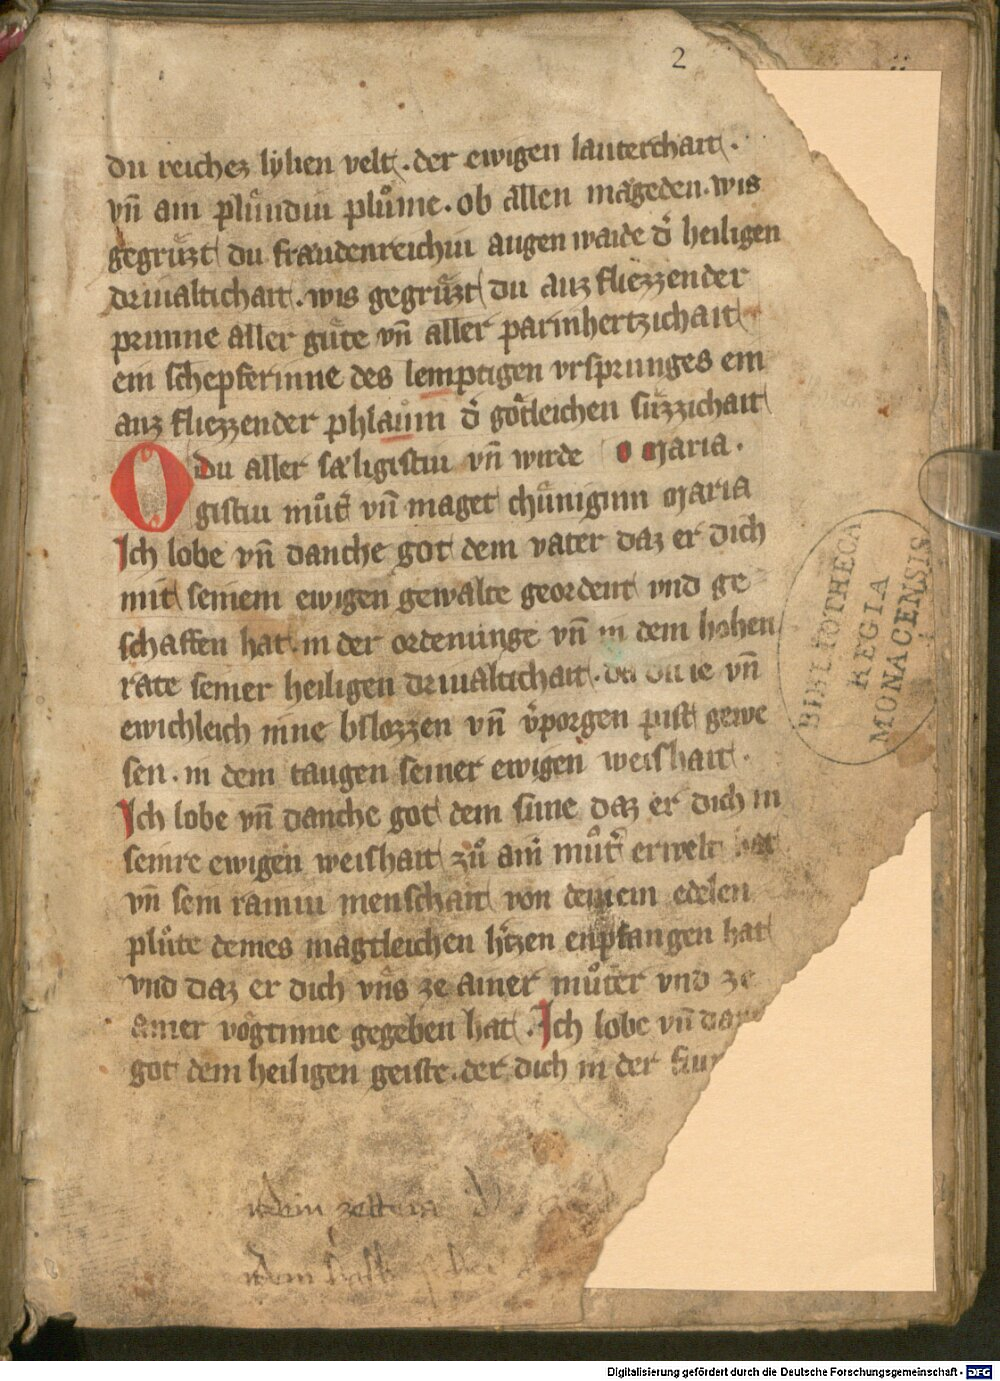 2
du reichez lylien velt . der ewigen lauterchait .
vn̄ ain plűndiu plůme . ob allen mägeden . wis
gegrűzt du fräudenreichiu augen waide d̄ heiligen
driualtichait . wis gegrűzt du auz fliezzender
prunne aller gűte vn̄ aller parmhertzichait
ein schepferinne des lemptigen vrsprunges ein
auz fliezzender phlaům d̄ götleichen sűzzichait
O du aller säligistiu vn̄ wirde o maria .
gistiu můt̄ vn̄ maget chűniginn maria
Ich lobe vn̄ danche got dem vater daz er dich
mit seinem ewigen gewalte geordent vnd ge
schaffen hat . in der ordenunge vn̄ in dem hohen
rate seiner heiligen driualtichait . da du ie vn̄
ewichleich inne bslozzen vn̄ v̄porgen pist gewe
sen . in dem taugen seiner ewigen weishait .
Ich lobe vn̄ danche got dem sune daz er dich in
seinre ewigen weishait zů ain̄ můt̄ erwelt hat
vn̄ sein rainiu menschait von deinem edelen
plůte deines magtleichen h̄tzen enpfangen hat
vnd daz er dich vns ze ainer můter vnd ze
ainer vögtinne gegeben hat . Ich lobe vn̄ dan
got dem heiligen geiste . der dich in der
BIBLIOTHECA
REGIA
MONACENSIS
Digitalisierung gefördert durch die Deutsche Forschungsgemeinschaft - DFG